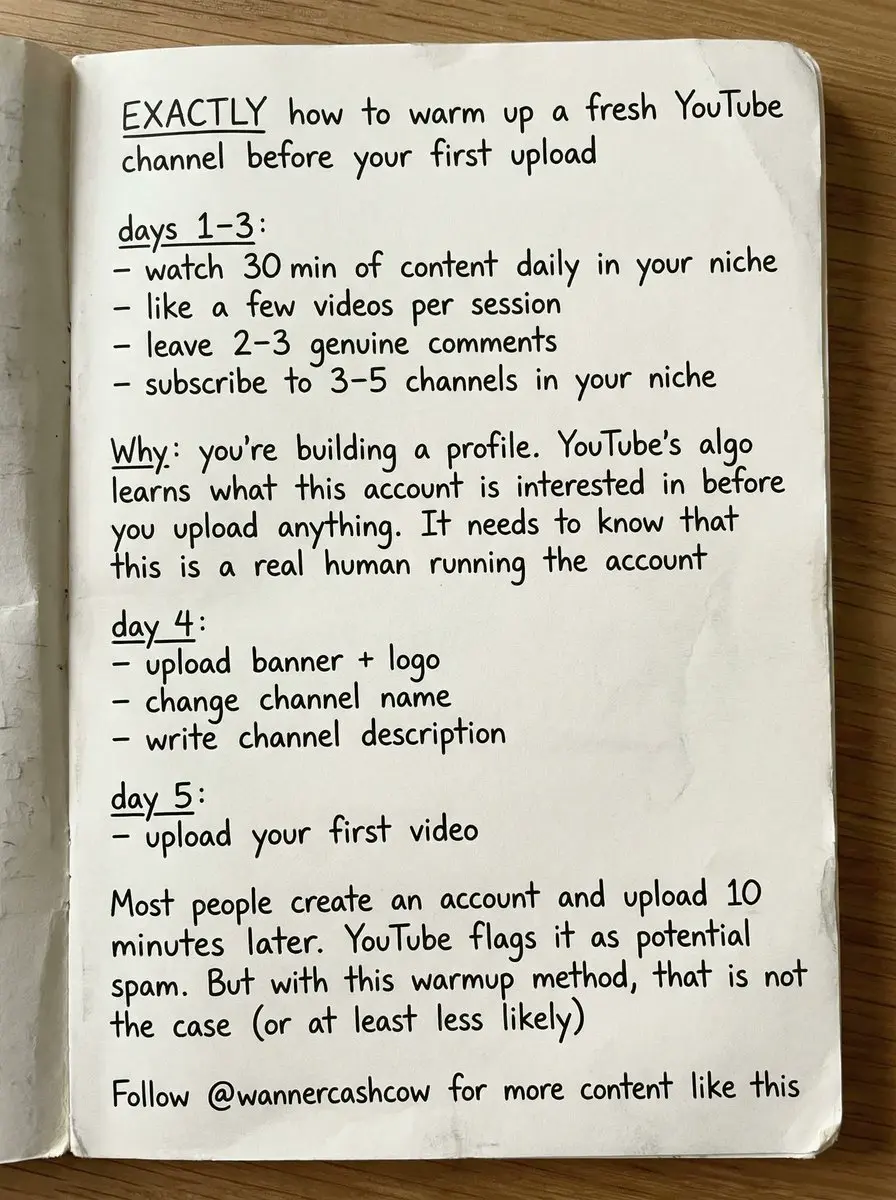 EXACTLY how to warm up a fresh YouTube
channel before your first upload
days 1-3:
- watch 30 min of content daily in your niche
- like a few videos per session
- leave 2-3 genuine comments
- subscribe to 3-5 channels in your niche
Why: you're building a profile. YouTube's algo
learns what this account is interested in before
you upload anything. It needs to know that
this is a real human running the account
day 4:
- upload banner + logo
- change channel name
- write channel description
day 5:
- upload your first video
Most people create an account and upload 10
minutes later. YouTube flags it as potential
spam. But with this warmup method, that is not
the case (or at least less likely)
Follow @wannercashcow for more content like this